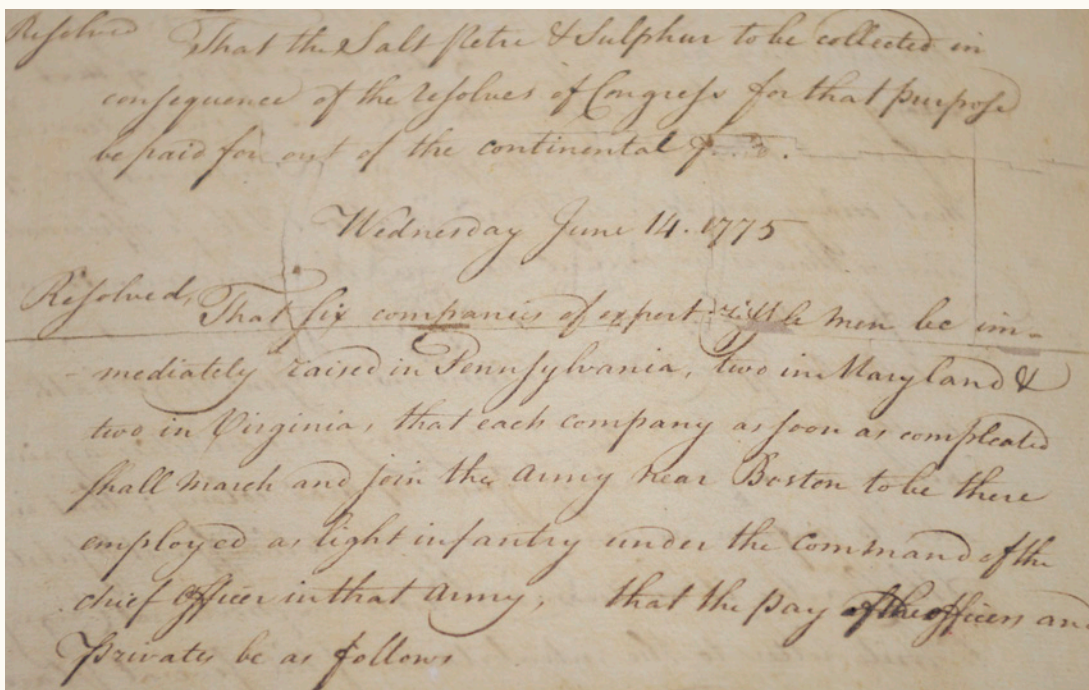 Resolved That the Salt petre & Sulphur to be collected in
consequence of the resolves of Congress for that purpose
be paid for out of the continental
Wednesday June 14. 1775
Resolved, That six companies of expert rifle men be im-
- mediately raised in Pennsylvania, two in Maryland &
two in Virginia, that each company as soon as compleated
shall march and join the army near Boston to be there
employed as light infantry under the command of the
chief officer in that army; that the pay of the officers and
Privates be as follows